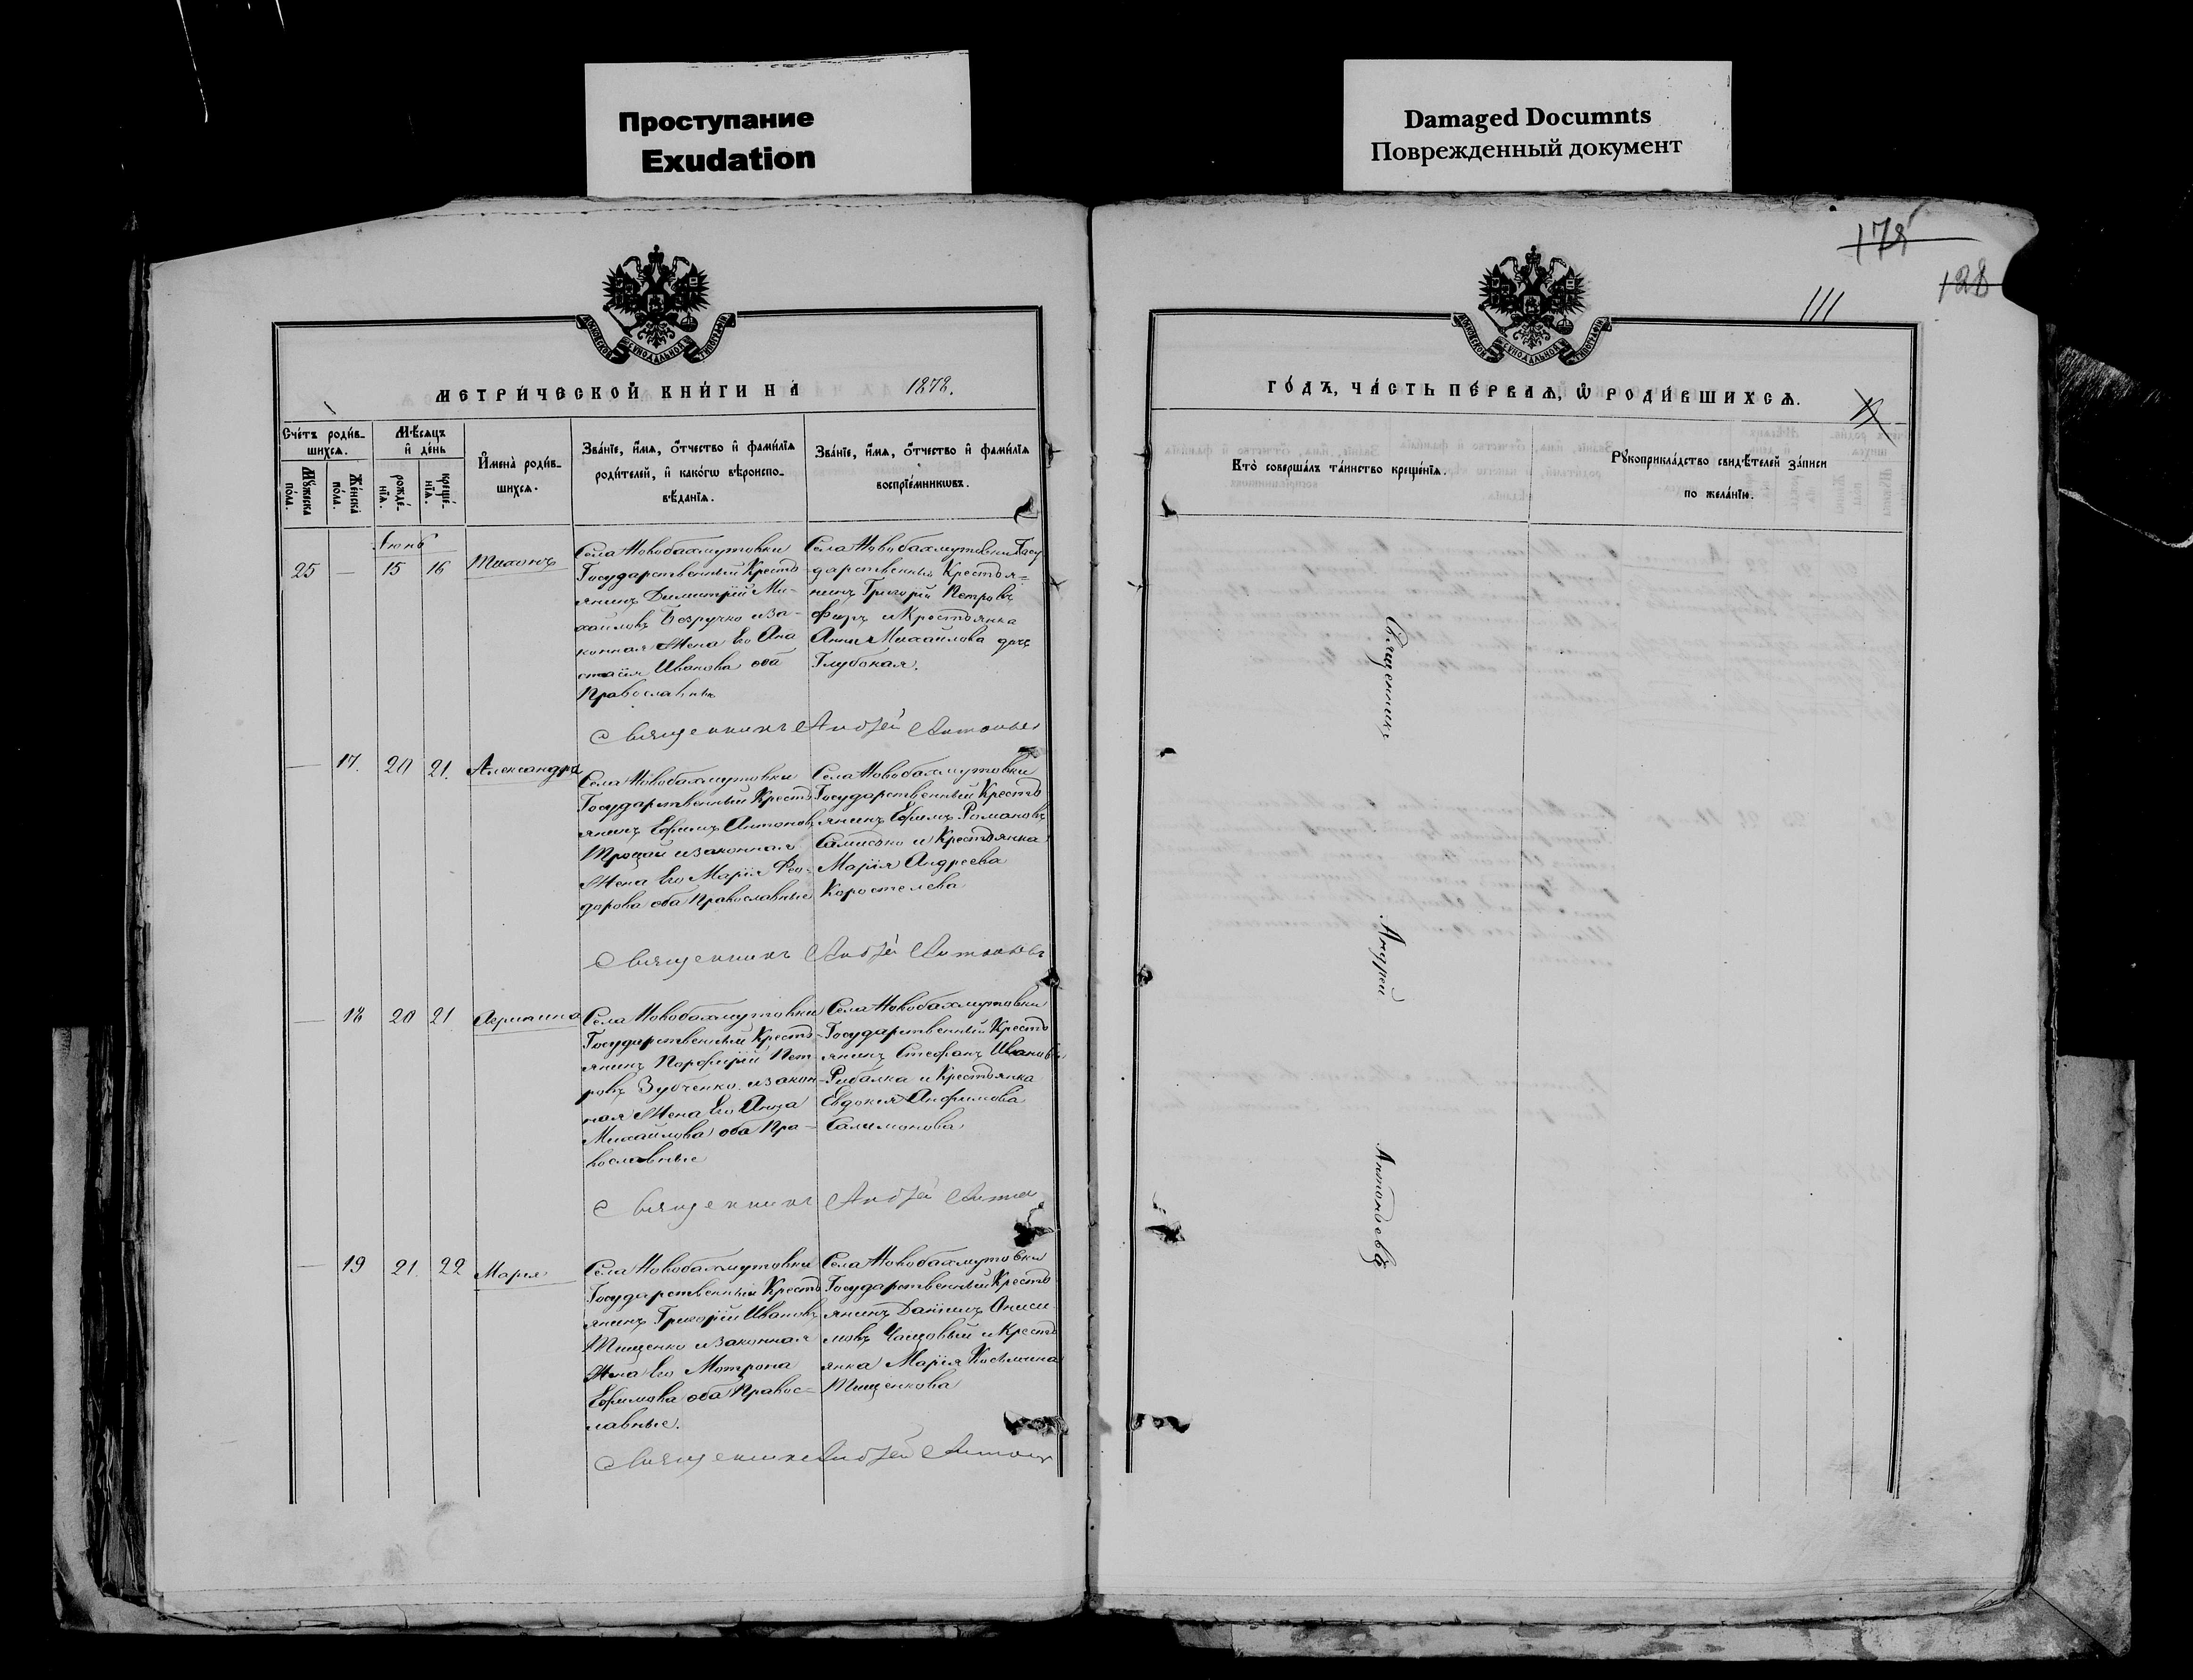 Проступание
Exudation
Damaged Documnts
Поврежденный документ
178
128
111
МЕТРИ́ЧЕСКОЙ КНИ́ГИ НА 1878.
ГО́ДЪ, ЧА́СТЬ ПЕ́РВАѦ, Ѽ РОДИ́ВШИХСѦ.
Сче́тъ роди́в-
шихсѧ.
Мꙋ́жеска
пола.
Же́нска
по́ла.
Мѣ́сѧцъ
и҆ де́нь
рожде́-
нїѧ.
креще́-
нїѧ.
И҆мена̀ роди́в-
шихсѧ.
Зва́нїе, и҆́мѧ, ѻ҆́тчество и҆ фами́лїѧ
роди́телей, и҆ како́гѡ вѣроиспо-
вѣ́данїѧ.
Зва́нїе, и҆́мѧ, ѻ҆́тчество и҆ фами́лїѧ
воспрїе́мникѡвъ.
Кто̀ соверша́лъ та́инство креще́нїѧ.
Рꙋкоприкла́дство свидѣ́телей за́писи
по жела́нїю.
Іюнь
25 — 15 16 Тихонъ
Села Новобахмутовки
Государственный Кресть
янинъ Димитрій Ми-
хаиловъ Безручко и за-
конная Жена Его Ана
стасія Иванова оба
Православные
Села Новобахмутовки Госу
дарственный Крестья-
нинъ Григорій Петровъ
и Крестьянка
Анна Михаилова дочь
Глубокая.
Священникъ Андрей Антоньев
— 17. 20 21. Александра
Села Новобахмутовки
Государственный Кресть
янинъ Ефимъ Антоновъ
Троцай и законная
Жена Его Марія Фео-
дорова оба Православные
Села Новобахмутовки
Государственный Кресть
янинъ Ефимъ Романовъ
и Крестьянка
Марія Андреева
Коростелева
Священникъ Андрей Антоньевъ
— 18 20 21 Агрипина
Села Новобахмутовки
Государственный Кресть
янинъ Порфирій Пет-
ровъ Зубченко и закон-
ная Жена Его Анна
Михаилова оба Пра-
вославные
Села Новобахмутовки
Государственный Кресть
янинъ Стефанъ Ивановъ
Рибалка и Крестьянка
Евдокія Анфимова
Салимонова
Священникъ Андрей Антон
— 19 21. 22 Марія
Села Новобахмутовки
Государственный Кресть
янинъ Григорій Ивановъ
Тищенко и законная
Жена Его Мотрона
Ефимова оба Правос-
лавные.
Села Новобахмутовки
Государственный Кресть
янинъ Даніилъ Ониси
мовъ Чащовый и Кресть
янка Марія Косьмина
Тищенкова
Священникъ Андрей Антон
Священникъ Андрей Антоньевъ